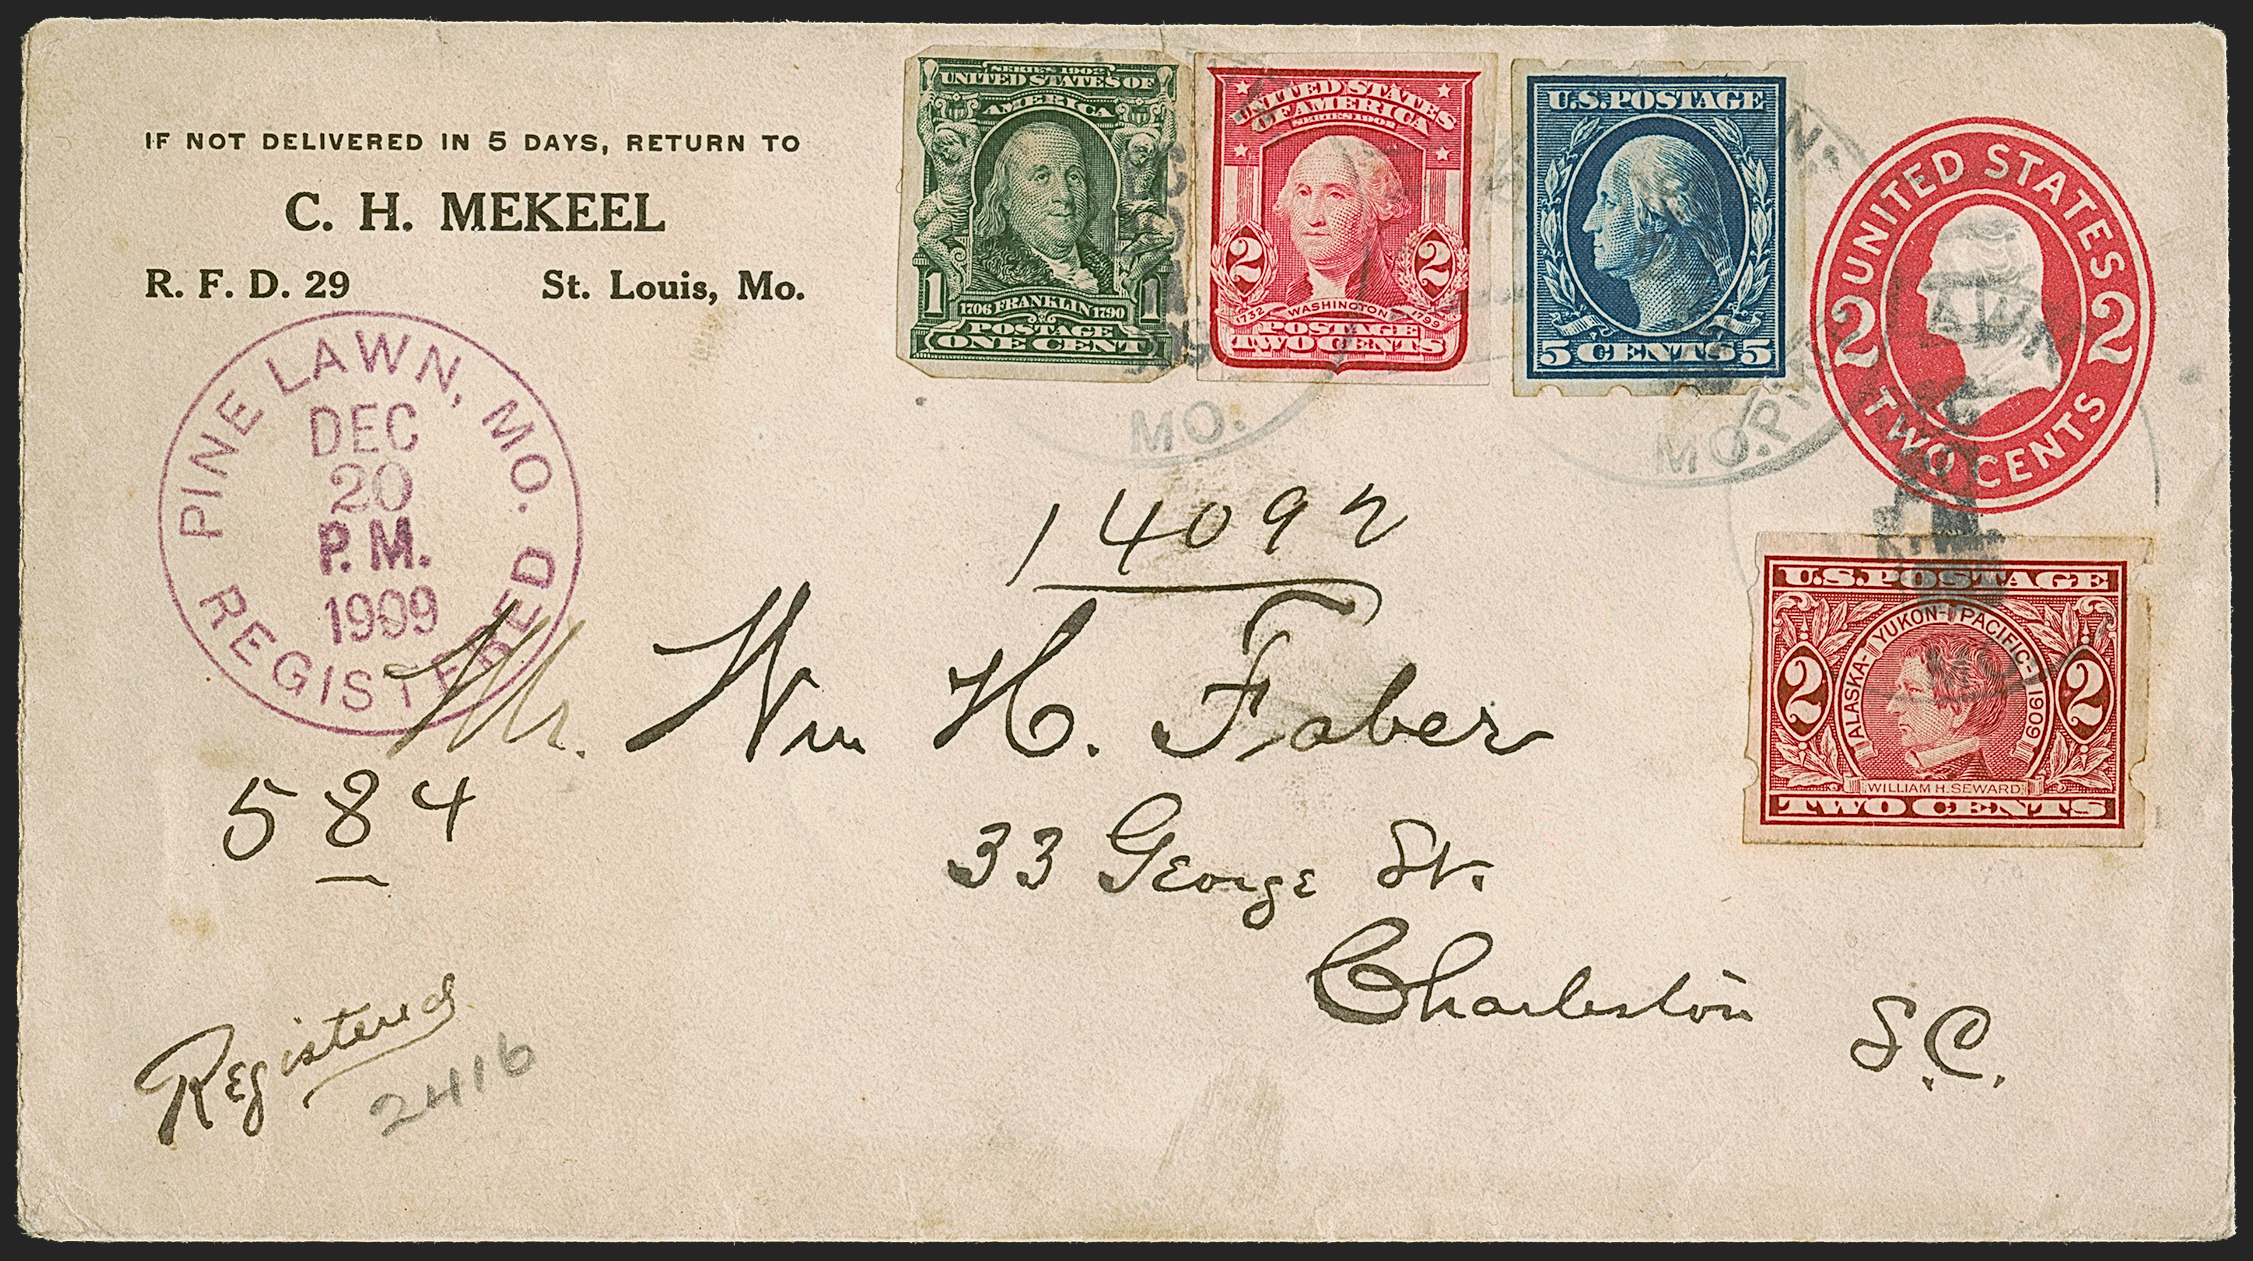 IF NOT DELIVERED IN 5 DAYS, RETURN TO
C. H. MEKEEL
R. F. D. 29 St. Louis, Mo.
PINE LAWN, MO.
DEC
20
P.M.
1909
REGISTERED
SERIES 1902
UNITED STATES OF
AMERICA
1 1
1706 FRANKLIN 1790
POSTAGE
ONE CENT
UNITED STATES
OF AMERICA
SERIES 1902
2 2
1732 WASHINGTON 1799
POSTAGE
TWO CENTS
U.S. POSTAGE
5 CENTS 5
UNITED STATES
2 2
TWO CENTS
MO.
MO.
U.S. POSTAGE
ALASKA-YUKON-PACIFIC-1909
2 2
WILLIAM H. SEWARD
TWO CENTS
14092
Mr. Wm H. Faber
584
33 George St.
Charleston S.C.
Registered
2416